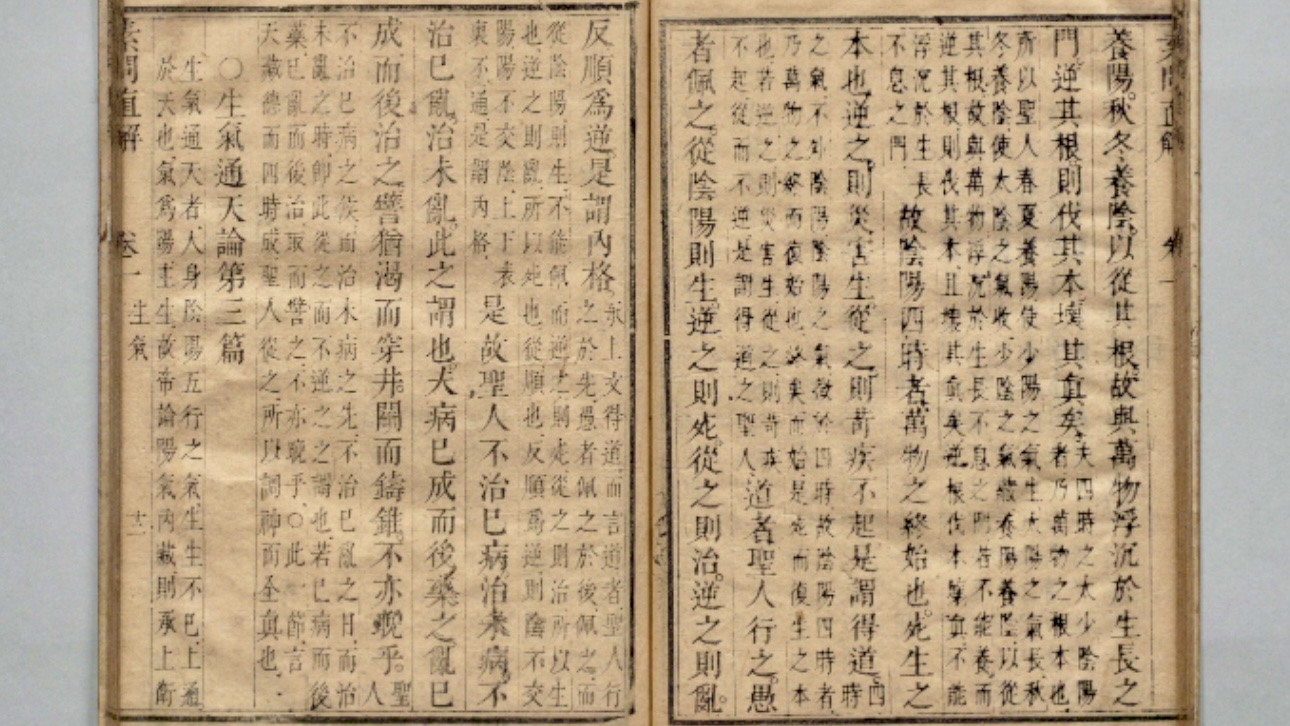 素問直解
卷一
養陽秋冬養陰以從其根故與萬物浮沉於生長之
門逆其根則伐其本壞其真矣
夫四時之太少陰陽
者乃萬物之根本也
所以聖人春夏養陽使少陽之氣生太陽之氣長秋
冬養陰使太陰之氣收少陰之氣藏養陽養陰以從
其根故與萬物浮沉於生長不息之門若不能養而
逆其根則伐其本且壞其真矣逆根伐本壞真不能
浮沉於生長
不息之門
故陰陽四時者萬物之終始也死生之
本也逆之則災害生從之則苛疾不起是謂得道
四
時
之氣不外陰陽陰陽之氣徵於四時故陰陽四時者
乃萬物之終而復始也終矣而始是死而復生之本
也若逆之則災害生從之則苛疾
不起從而不逆是謂得道之聖人
道者聖人行之愚
者佩之從陰陽則生逆之則死從之則治逆之則亂
反順爲逆是謂內格
承上文得道而言道者聖人行
之於先愚者佩之於後佩之而
從陰陽則生不能佩而逆之則死從之則治所以生
也逆之則亂所以死也從順也反順爲逆則陰不交
陽陽不交陰上下表
裏不通是謂內格
是故聖人不治巳病治未病不
治巳亂治未亂此之謂也夫病巳成而後藥之亂巳
成而後治之譬猶渴而穿井鬬而鑄錐不亦晚乎
聖
人
不治巳病之候而治未病之先不治巳亂之日而治
未亂之時卽此從之而不逆之之謂也若巳病而後
藥巳亂而後治取而譬之不亦晚乎○此一節言
天藏德而四時成聖人從之所以調神而全真也
○生氣通天論第三篇
生氣通天者人身陰陽五行之氣生生不巳上通
於天也氣爲陽主生故帝論陽氣內藏則承上衛
素問直解
卷一
生氣
十二